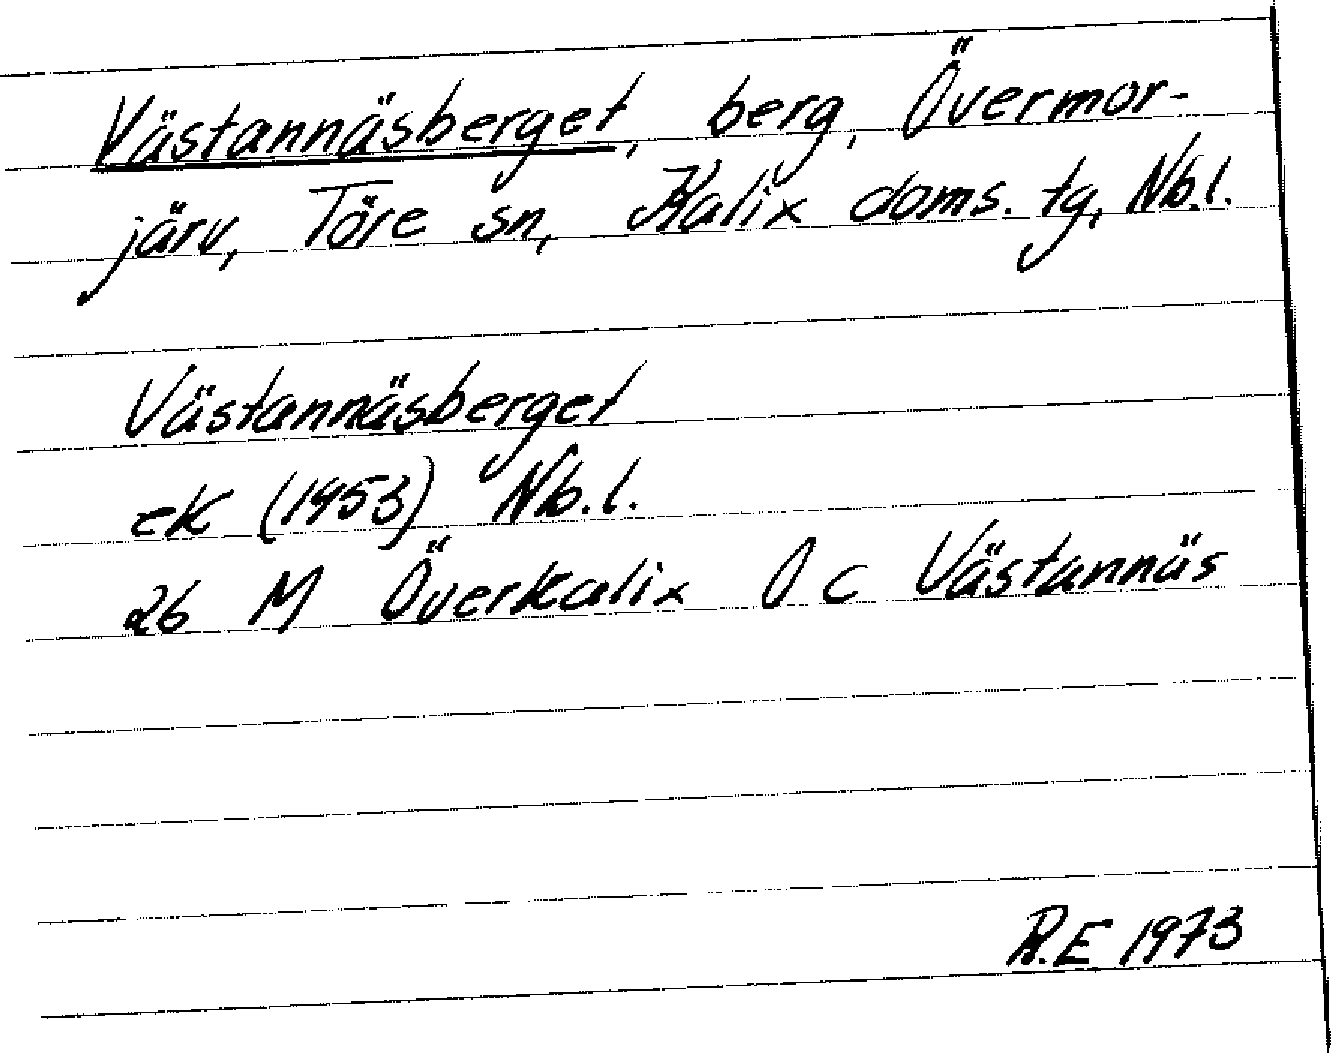 Västannäsberget, berg, Övermor-
järv, Töre sn, Kalix doms. tg, Nb.l.
Västannäsberget
ek (1953) Nb.l.
26 M Överkalix O c Västannäs
R.E 1973